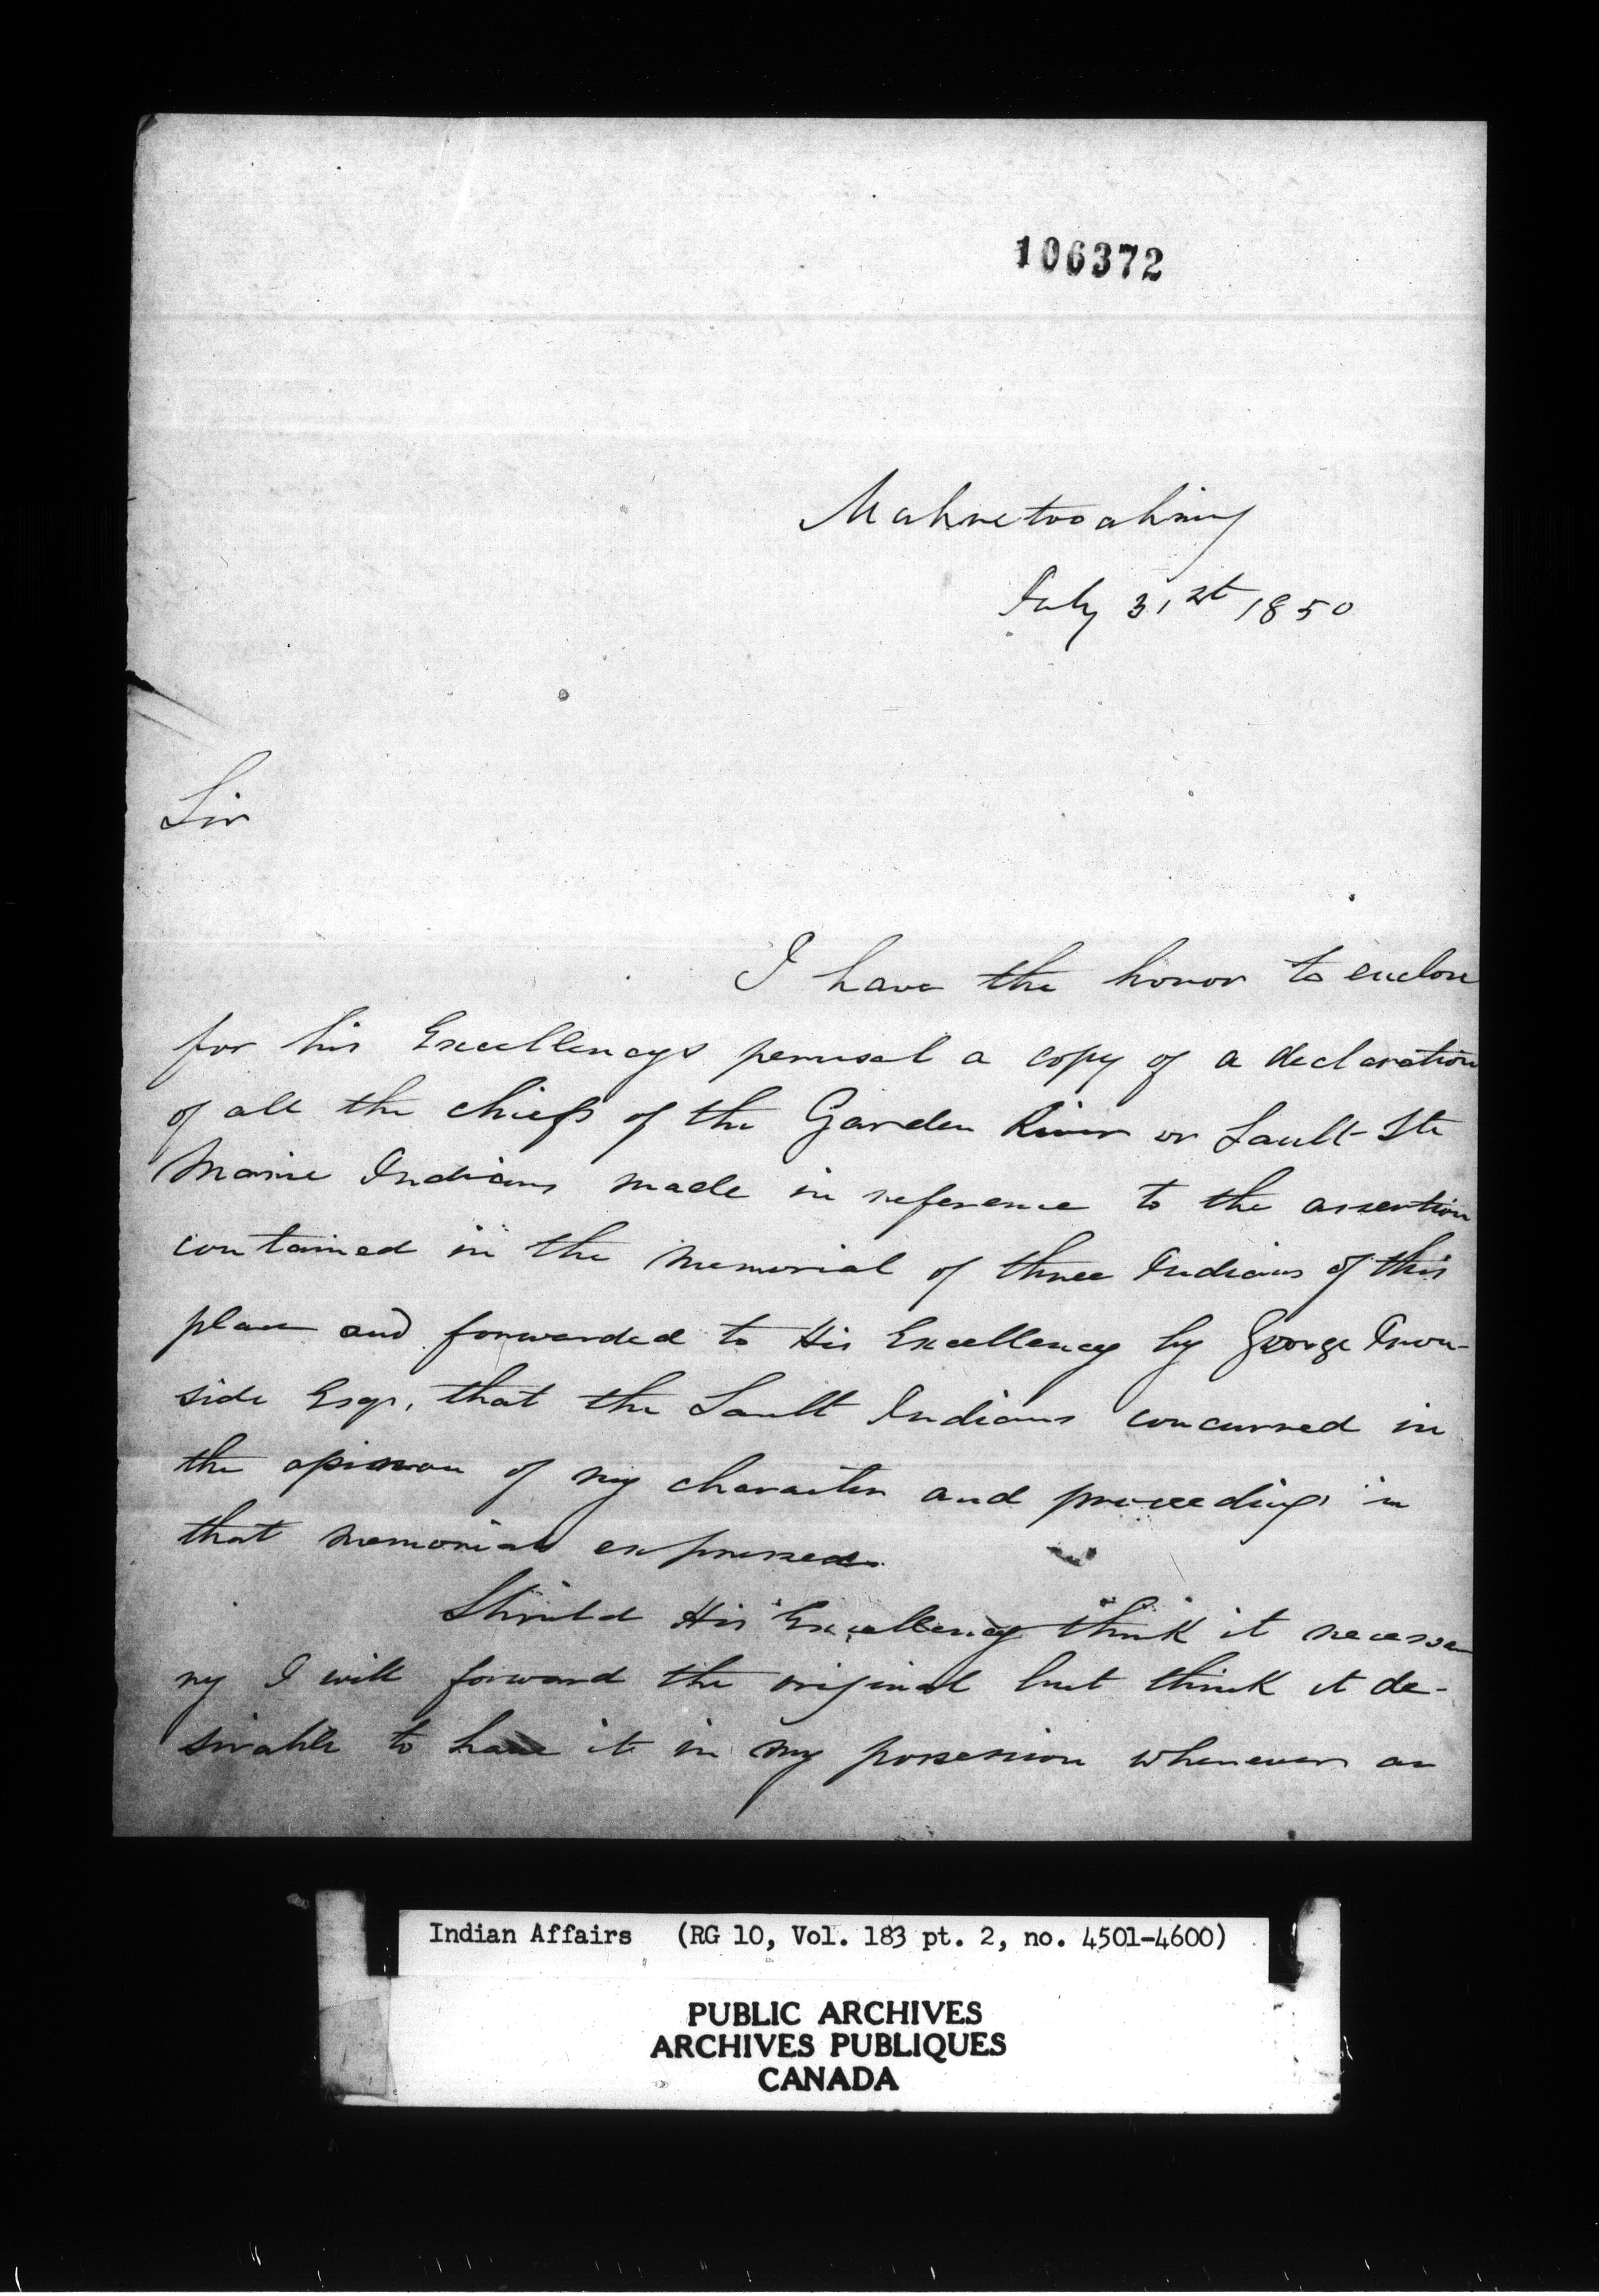 106372
Mahnetooahning
July 31st 1850
Sir
I have the honor to enclose
for his Excellencys perusal a copy of a declaration
of all the chiefs of the Garden River or Sault Ste
Marie Indians made in reference to the assertion
contained in the memorial of three Indians of this
place and forwarded to His Excellency by George Iron-
side Esqr, that the Sault Indians concurred in
the opinion of my character and proceedings in
that memorial expressed.
Should His Excellency think it necessa
ry I will forward the original but think it de-
sirable to have it in my possession whenever an
Indian Affairs (RG 10, Vol. 183 pt. 2, no. 4501-4600)
PUBLIC ARCHIVES
ARCHIVES PUBLIQUES
CANADA